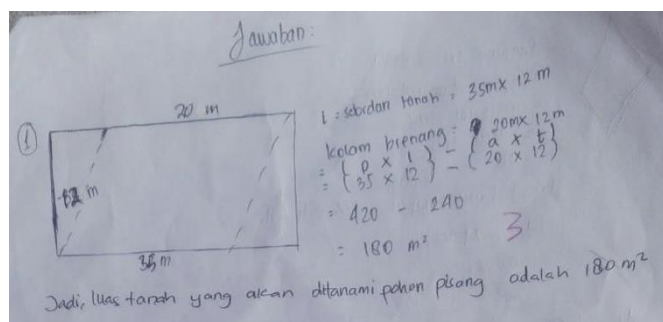 Jawaban:
①
20 m
12 m
35 m
1 = sebidan tanah = 35m x 12 m
kolam brenang = 20m x 12 m
= (p x l) - (a x t)
= (35 x 12) - (20 x 12)
= 420 - 240
= 180 m²
3
Jadi, luas tanah yang akan ditanami pohon pisang adalah 180 m²